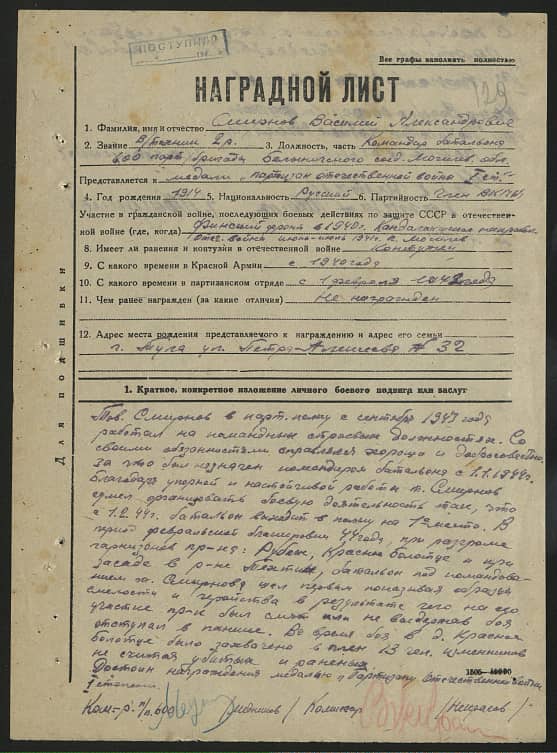 ПОСТУПИЛО
Все графы заполнять полностью
НАГРАДНОЙ ЛИСТ
1. Фамилия, имя и отчество Смирнов Василий Александрович
2. Звание в/техник 2р. 3. Должность, часть Командир батальона
600 парт/бригады Белыничского соед. Могилев. обл.
Представляется к медали, партизан отечественной война I ст.
4. Год рождения 1914 5. Национальность Русский 6. Партийность Член ВКП(б)
Участие в гражданской войне, последующих боевых действиях по защите СССР в отечествен-
ной войне (где, когда) Финский фронт в 1940г. Кандалакшское направл.
отеч. война июнь-июль 1941 г. г. Могилев
8. Имеет ли ранения и контузии в отечественной войне Контужен
9. С какого времени в Красной Армии с 1940 года
10. С какого времени в партизанском отряде с 1 февраля 1942 года
11. Чем ранее награжден (за какие отличия) Не награжден
12. Адрес места рождения представляемого к награждению и адрес его семьи
г. Тула ул. Петра-Алексеева № 32
Для подшивки
1. Краткое, конкретное изложение личного боевого подвига или заслуг
Тов. Смирнов в парт. полку с сентября 1943 года
работал на командных строевых должностях. Со
своими обязанностями справлялся хорошо и добросовестно.
За что был назначен командиром батальона с 1.1.1944г.
Благодаря упорной и настойчивой работы т. Смирнов
сумел организовать боевую деятельность так, что
с 1.2.44г. батальон выходит в полку на 1е место. В
период февральской 44 года, при разгроме
гарнизонов пр-ка: Рубеж, Красное болотце и при
засаде в р-не батальон под командова-
нием т. Смирнова шел первым показывая образцы
смелости и геройства в результате чего на его
участке пр-к был смят и не выдержав боя
отступал в панике. Во время боя в д. Красное
Болотце было захвачено в плен 13 чел. изменников
не считая убитых и раненых.
Достоин награждения медалью "Партизану Отечественной войны
I степени.
1505
Ком-р п/п. 600 /Комиссар /